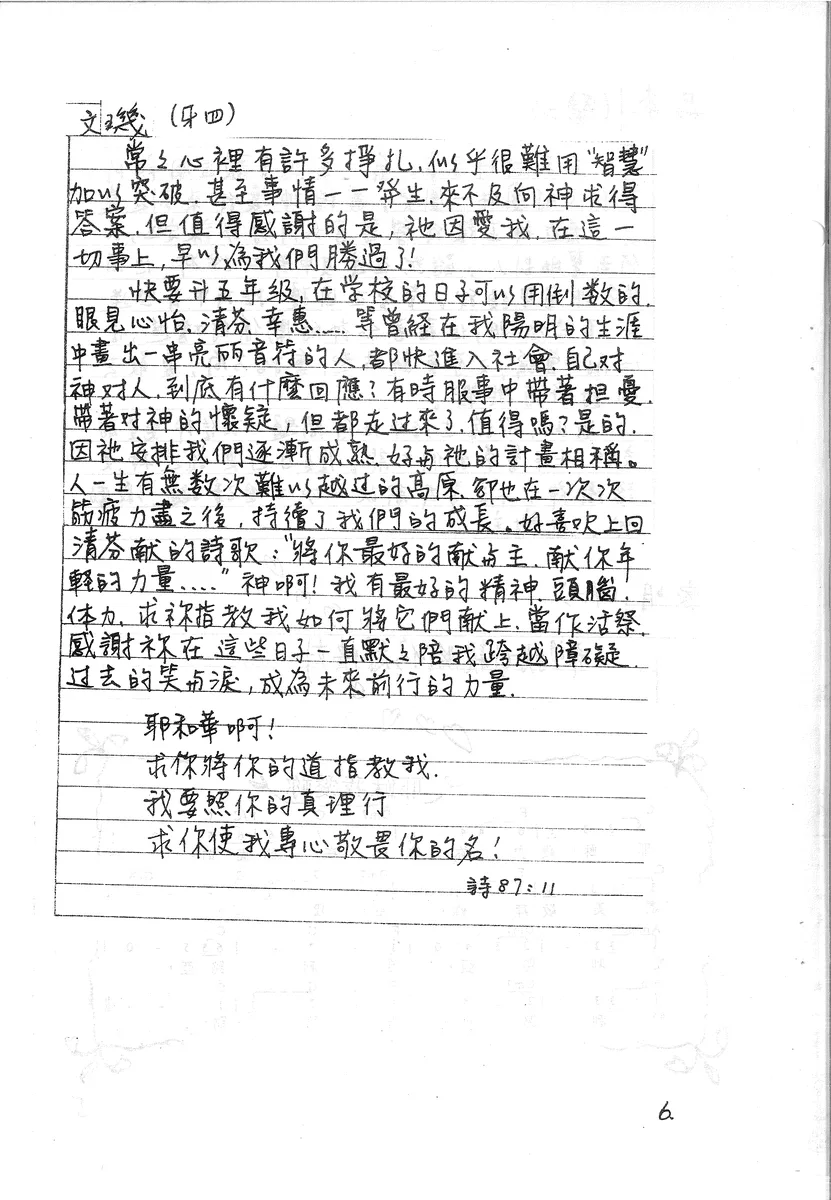 文璣 (牙四)
常々心裡有許多掙扎.似乎很難用"智慧"
加以突破.甚至事情一一發生.來不及向神求得
答案.但值得感謝的是,祂因愛我.在這一
切事上,早以為我們勝過了!
快要升五年級,在学校的日子可以用倒数的.
眼見心怡.清芬.幸惠……等曾経在我陽明的生涯
中畫出一串亮丽音符的人,都快進入社會.自己对
神对人.到底有什麼回應?有時服事中帶著担憂.
帶著对神的懷疑,但都走过來了.值得嗎?是的.
因祂安排我們逐漸成熟.好与祂的計畫相稱。
人一生有無数次難以越过的高原.卻也在一次次
筋疲力盡之後,持續了我們的成長。好喜欢上回
清芬献的詩歌:"將你最好的献与主.献你年
輕的力量....."神啊!我有最好的精神.頭腦.
体力.求祢指教我如何將它們献上.當作活祭.
感謝祢在這些日子一直默々陪我跨越障礙.
过去的笑与淚,成為未來前行的力量.
耶和華啊!
求你將你的道指教我.
我要照你的真理行
求你使我專心敬畏你的名!
詩87:11
6.